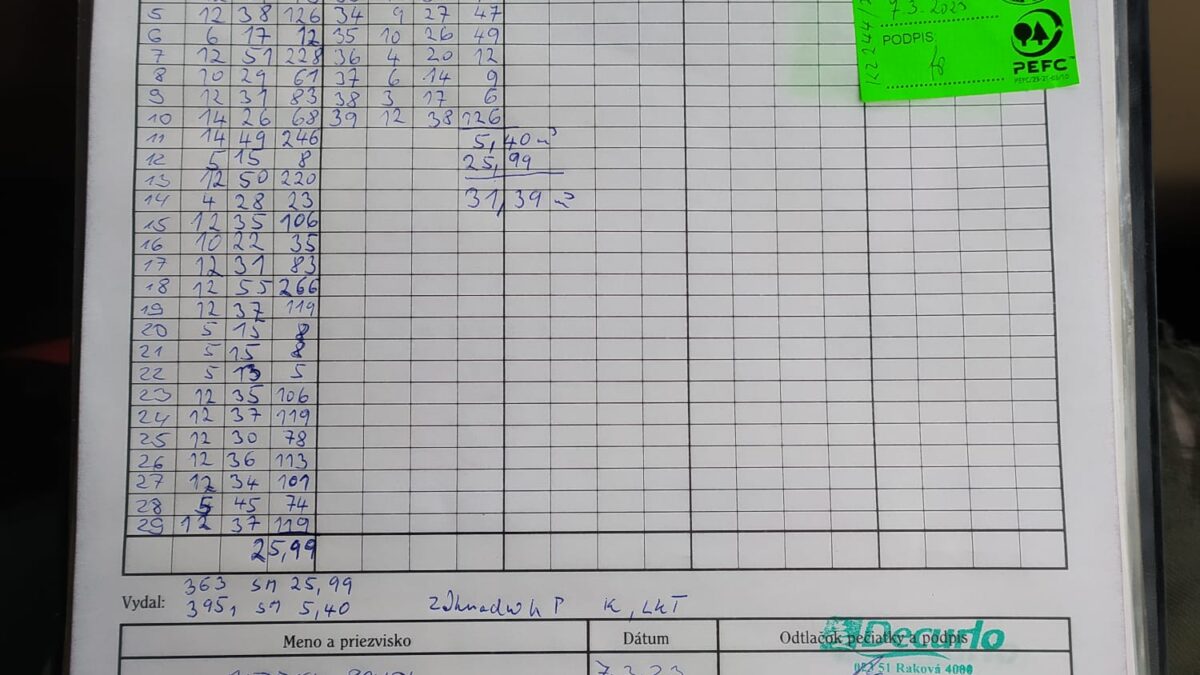 5 12 38 126 34 9 27 47
6 6 17 12 35 10 26 49
7 12 51 228 36 4 20 12
8 10 29 61 37 6 14 9
9 12 31 83 38 3 17 6
10 14 26 68 39 12 38 126
11 14 49 246 5,40 m³
12 5 15 8 25,99
13 12 50 220
14 4 28 23 31,39 m³
15 12 35 106
16 10 22 35
17 12 31 83
18 12 55 266
19 12 37 119
20 5 15 8
21 5 15 8
22 5 13 5
23 12 35 106
24 12 37 119
25 12 30 78
26 12 36 113
27 12 34 101
28 5 45 74
29 12 37 119
25,99
363 SM 25,99
Vydal: 395, SM 5,40 K, LKT
Meno a priezvisko Dátum Odtlačok pečiatky a podpis
7.3.23
Decurlo
023 51 Raková
7.3.2023
PODPIS
PEFC